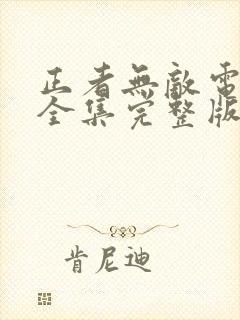 正者無敵電
全集完整版
肯尼迪